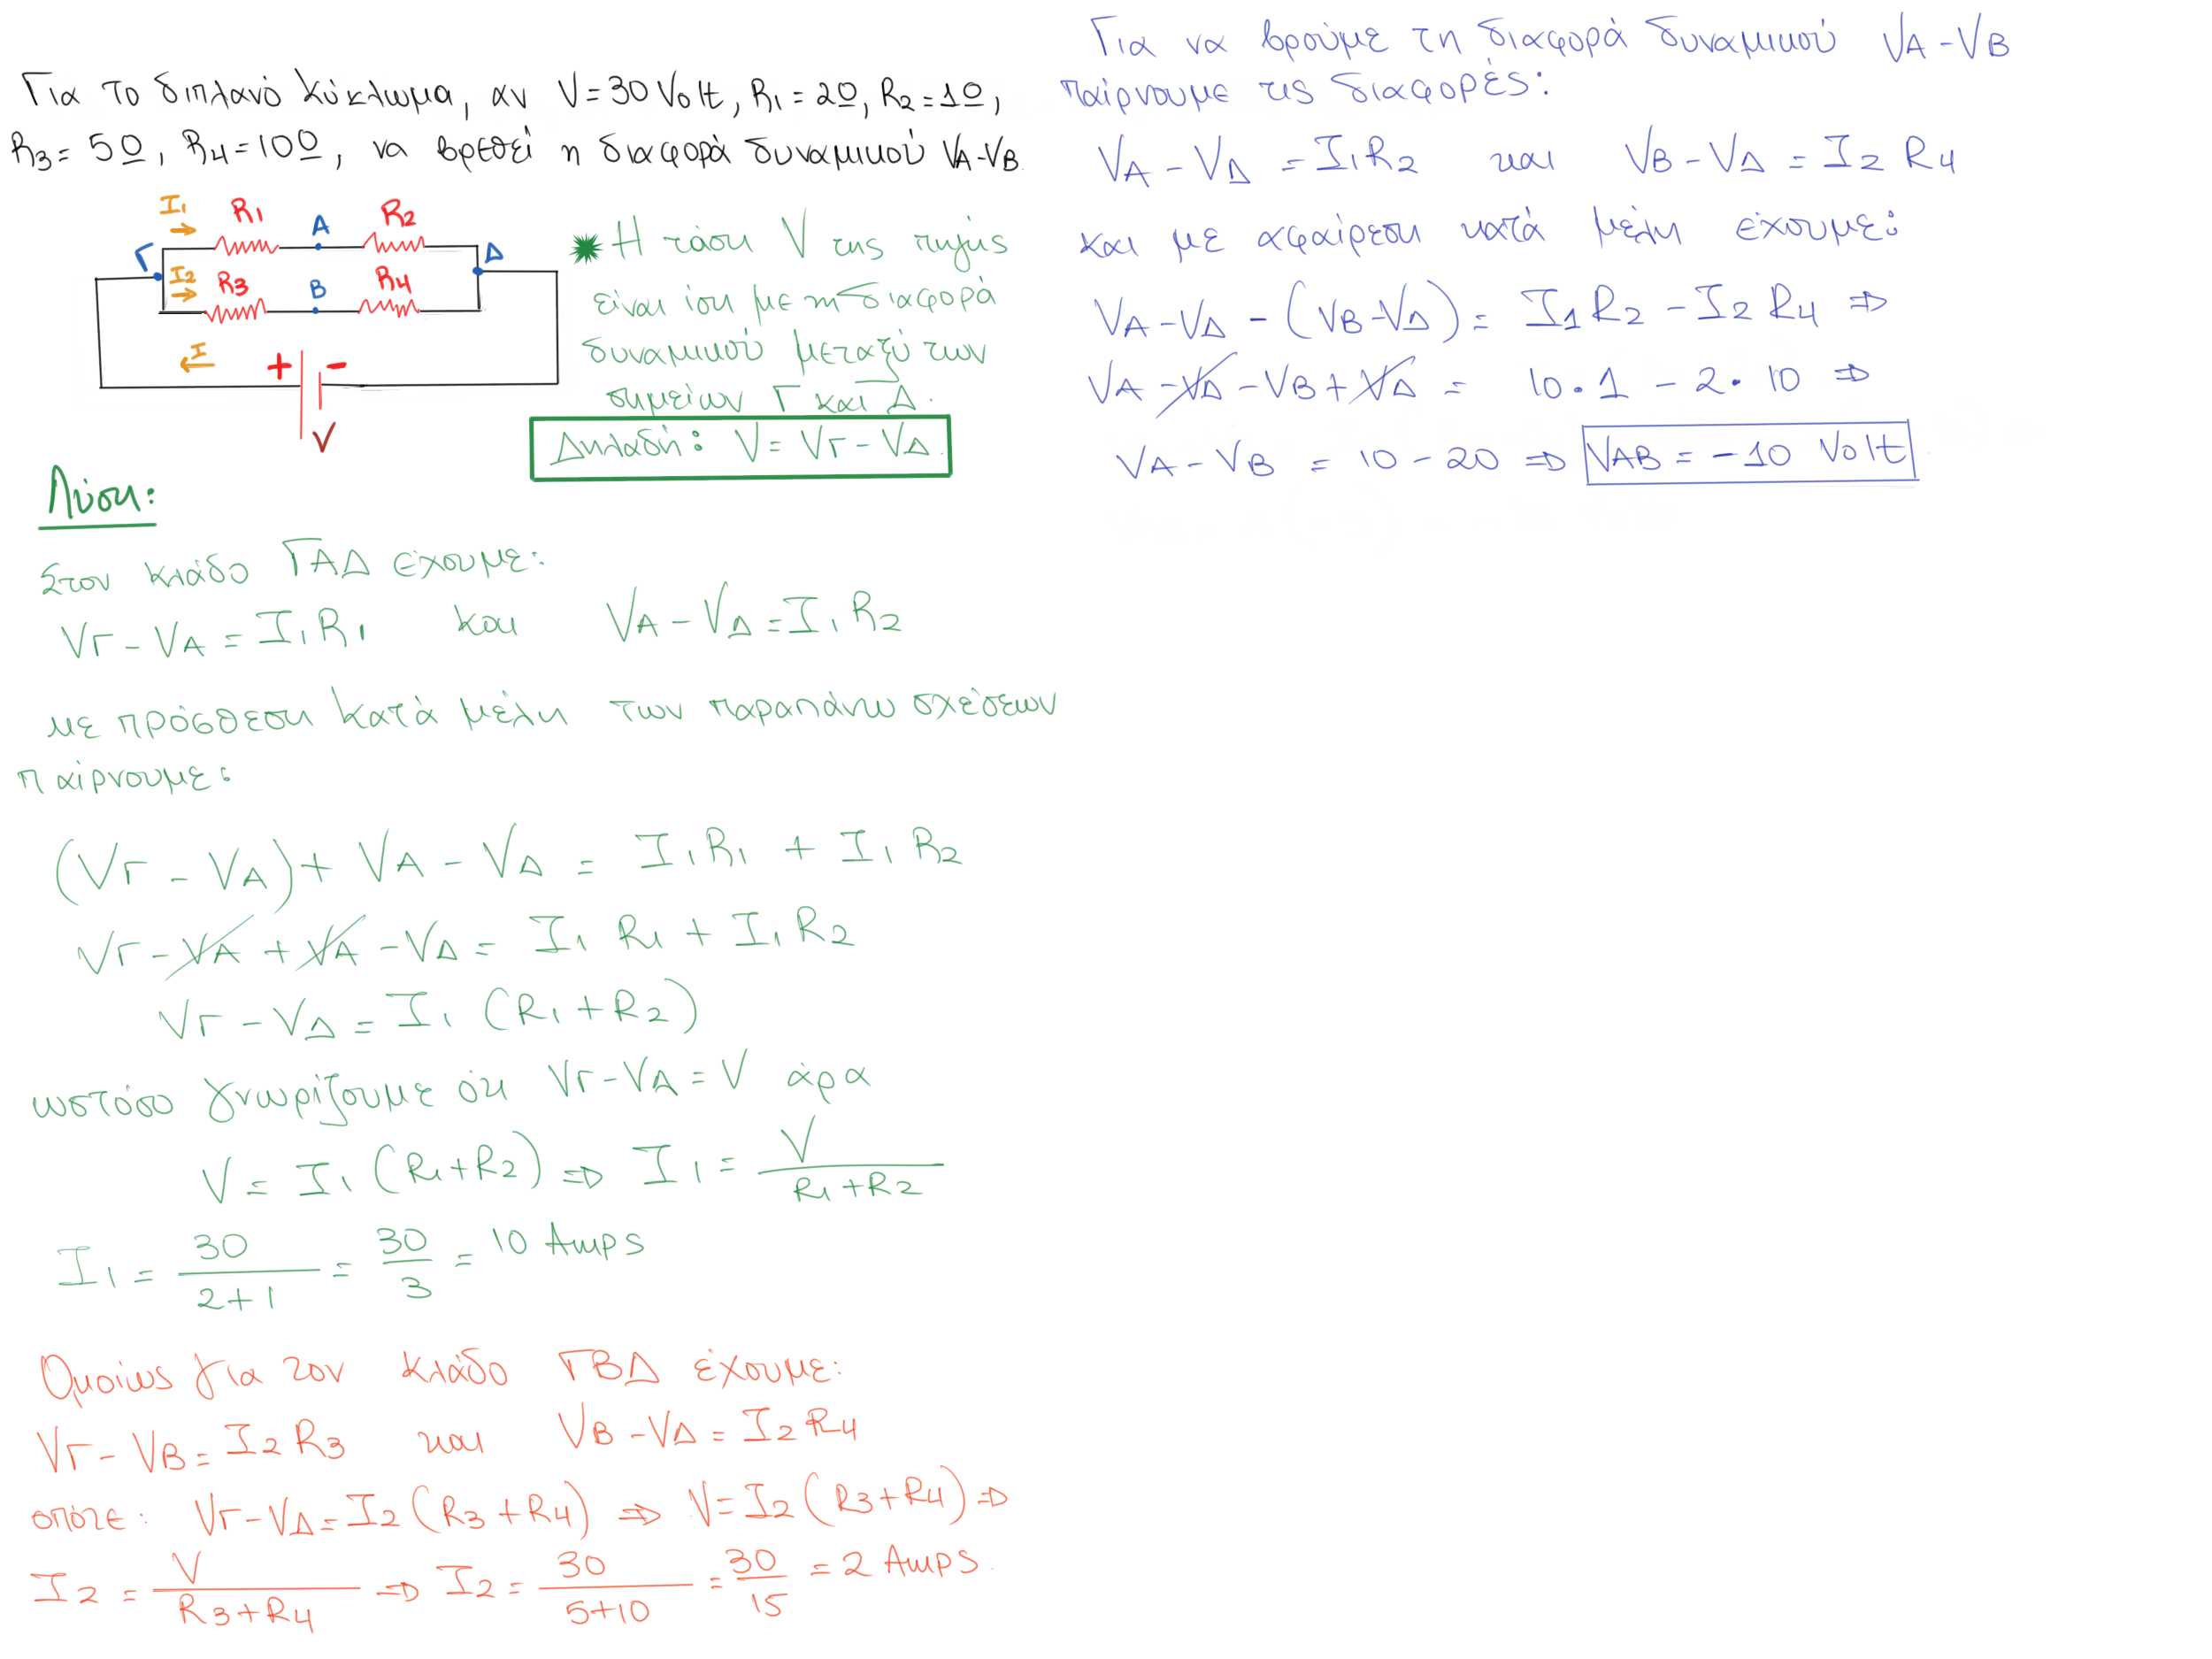 Για το διπλανό κύκλωμα, αν V=30 Volt, R1=2Ω, R2=1Ω,
R3=5Ω, R4=10Ω, να βρεθεί η διαφορά δυναμικού VA-VB.
I1 R1 A R2
Γ Δ
I2 R3 B R4
I
+ -
V
* Η τάση V της πηγής
είναι ίση με τη διαφορά
δυναμικού μεταξύ των
σημείων Γ και Δ.
Δηλαδή: V = VΓ - VΔ.
Λύση:
Στον κλάδο ΓΑΔ έχουμε:
VΓ - VA = I1R1 και VA - VΔ = I1R2
με πρόσθεση κατά μέλη των παραπάνω σχέσεων
παίρνουμε:
(VΓ - VA) + VA - VΔ = I1R1 + I1R2
VΓ - VA + VA - VΔ = I1R1 + I1R2
VΓ - VΔ = I1 (R1+R2)
ωστόσο γνωρίζουμε ότι VΓ - VA = V άρα
V = I1 (R1+R2) ⇒ I1 = V / (R1+R2)
I1 = 30 / (2+1) = 30/3 = 10 Amps
Ομοίως για τον κλάδο ΓΒΔ έχουμε:
VΓ - VB = I2R3 και VB - VΔ = I2R4
οπότε: VΓ - VΔ = I2 (R3+R4) ⇒ V = I2 (R3+R4) ⇒
I2 = V / (R3+R4) ⇒ I2 = 30 / (5+10) = 30/15 = 2 Amps.
Για να βρούμε τη διαφορά δυναμικού VA - VB
παίρνουμε τις διαφορές:
VA - VΔ = I1R2 και VB - VΔ = I2R4
και με αφαίρεση κατά μέλη έχουμε:
VA - VΔ - (VB - VΔ) = I1R2 - I2R4 ⇒
VA - VΔ - VB + VΔ = 10·1 - 2·10 ⇒
VA - VB = 10 - 20 ⇒ VAB = -10 Volt